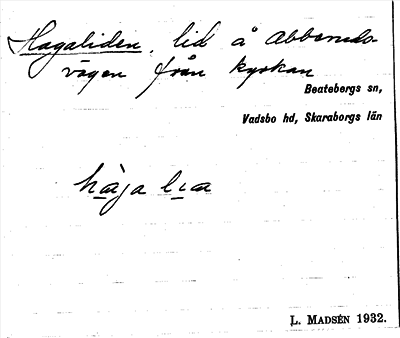 Hagaliden, lid å Abberuds-
vägen från kyrkan
Beatebergs sn,
Vadsbo hd, Skaraborgs län
L. MADSÉN 1932.